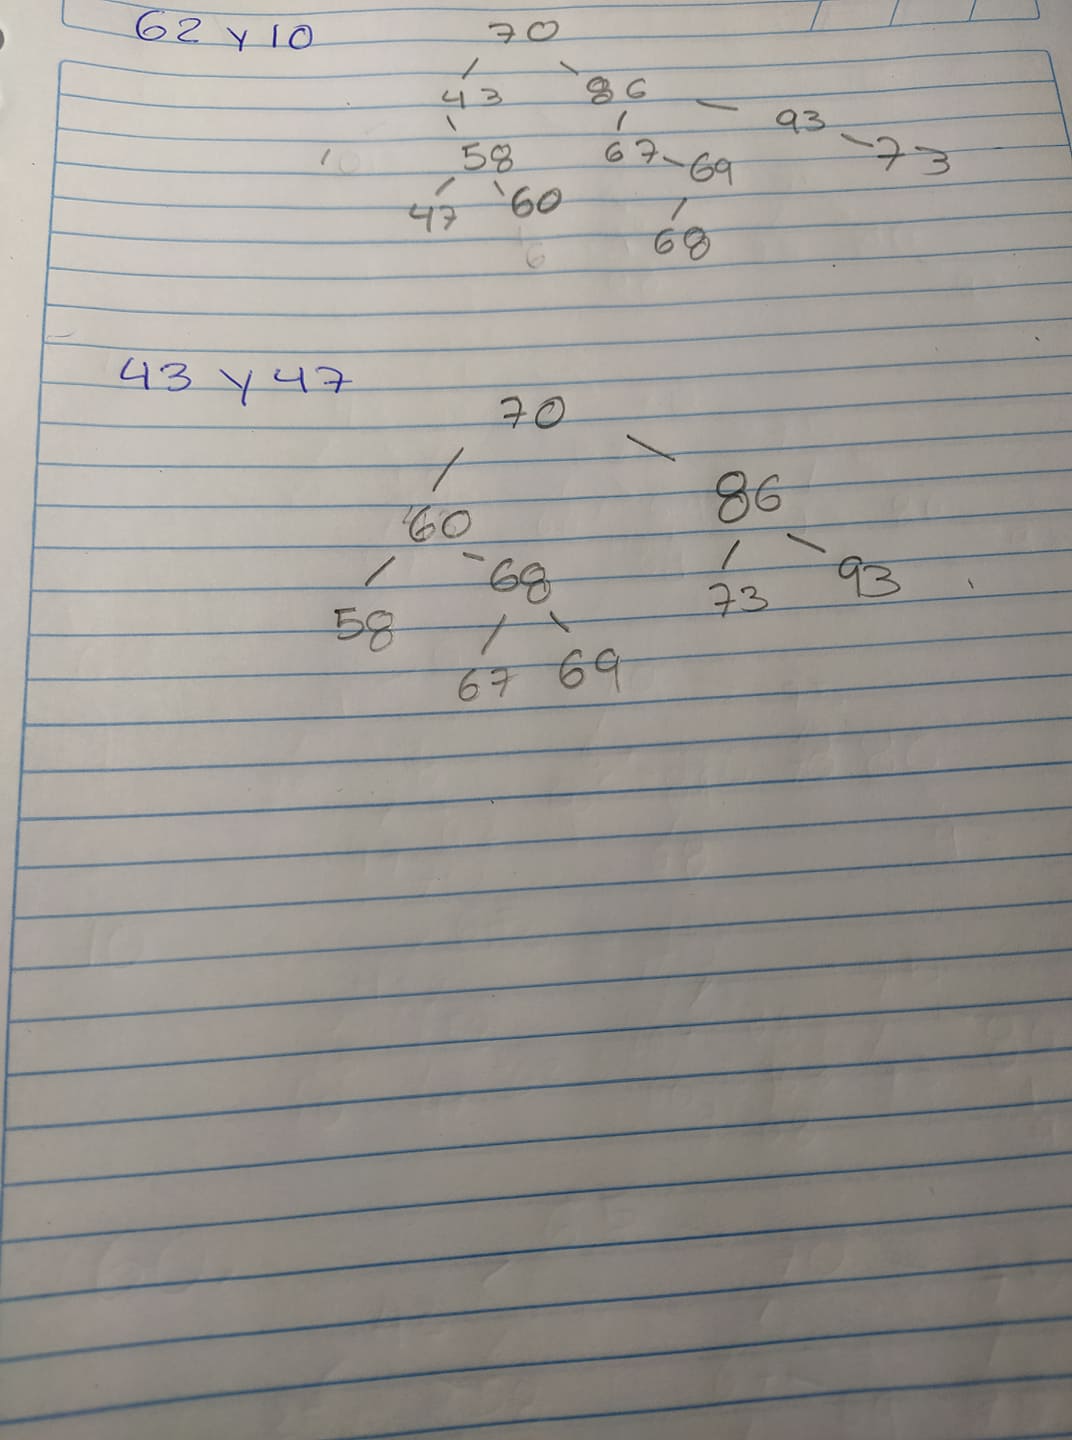 62 y 10 70
43 86
93
58 67 69 73
47 60
68
43 y 47
70
60 86
68 93
58 73
67 69